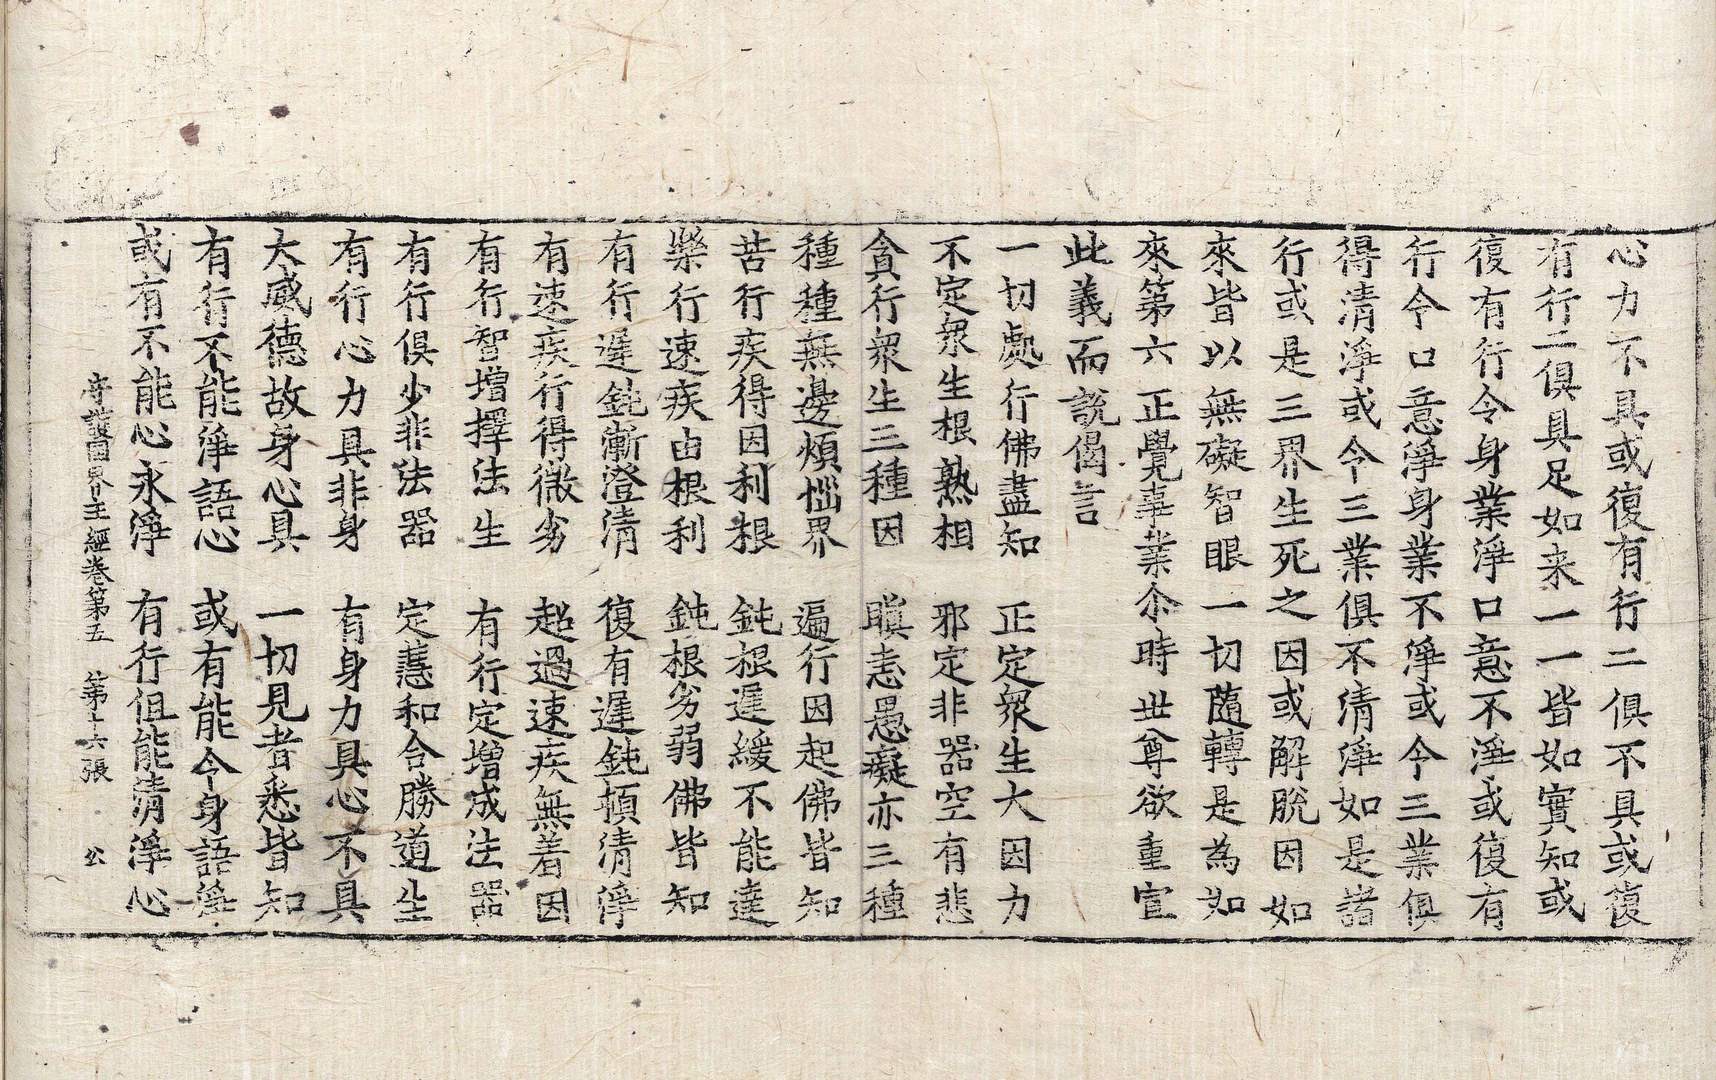 心力不具或復有行二俱不具或復
有行二俱具足如来一一皆如實知或
復有行令身業淨口意不淨或復有
行令口意淨身業不淨或令三業俱
得清淨或令三業俱不清淨如是諸
行或是三界生死之因或解脫因如
來皆以無礙智眼一切隨轉是為如
來第六正覺事業尒時世尊欲重宣
此義而說偈言
一切處行佛盡知　正定衆生大因力
不定衆生根熟相　邪定非器空有悲
貪行衆生三種因　瞋恚愚癡亦三種
種種無邊煩惱界　遍行因起佛皆知
苦行疾得因利根　鈍根遲緩不能達
樂行速疾由根利　鈍根劣弱佛皆知
有行遲鈍漸澄清　復有遲鈍頓清淨
有速疾行得微劣　超過速疾無着因
有行智增擇法生　有行定增成法器
有行俱少非法器　定慧和合勝道生
有行心力具非身　有身力具心不具
大威德故身心具　一切見者悉皆知
有行不能淨語心　或有能令身語淨
或有不能心永淨　有行但能清淨心
守護國界主經卷第五　第十六張　公